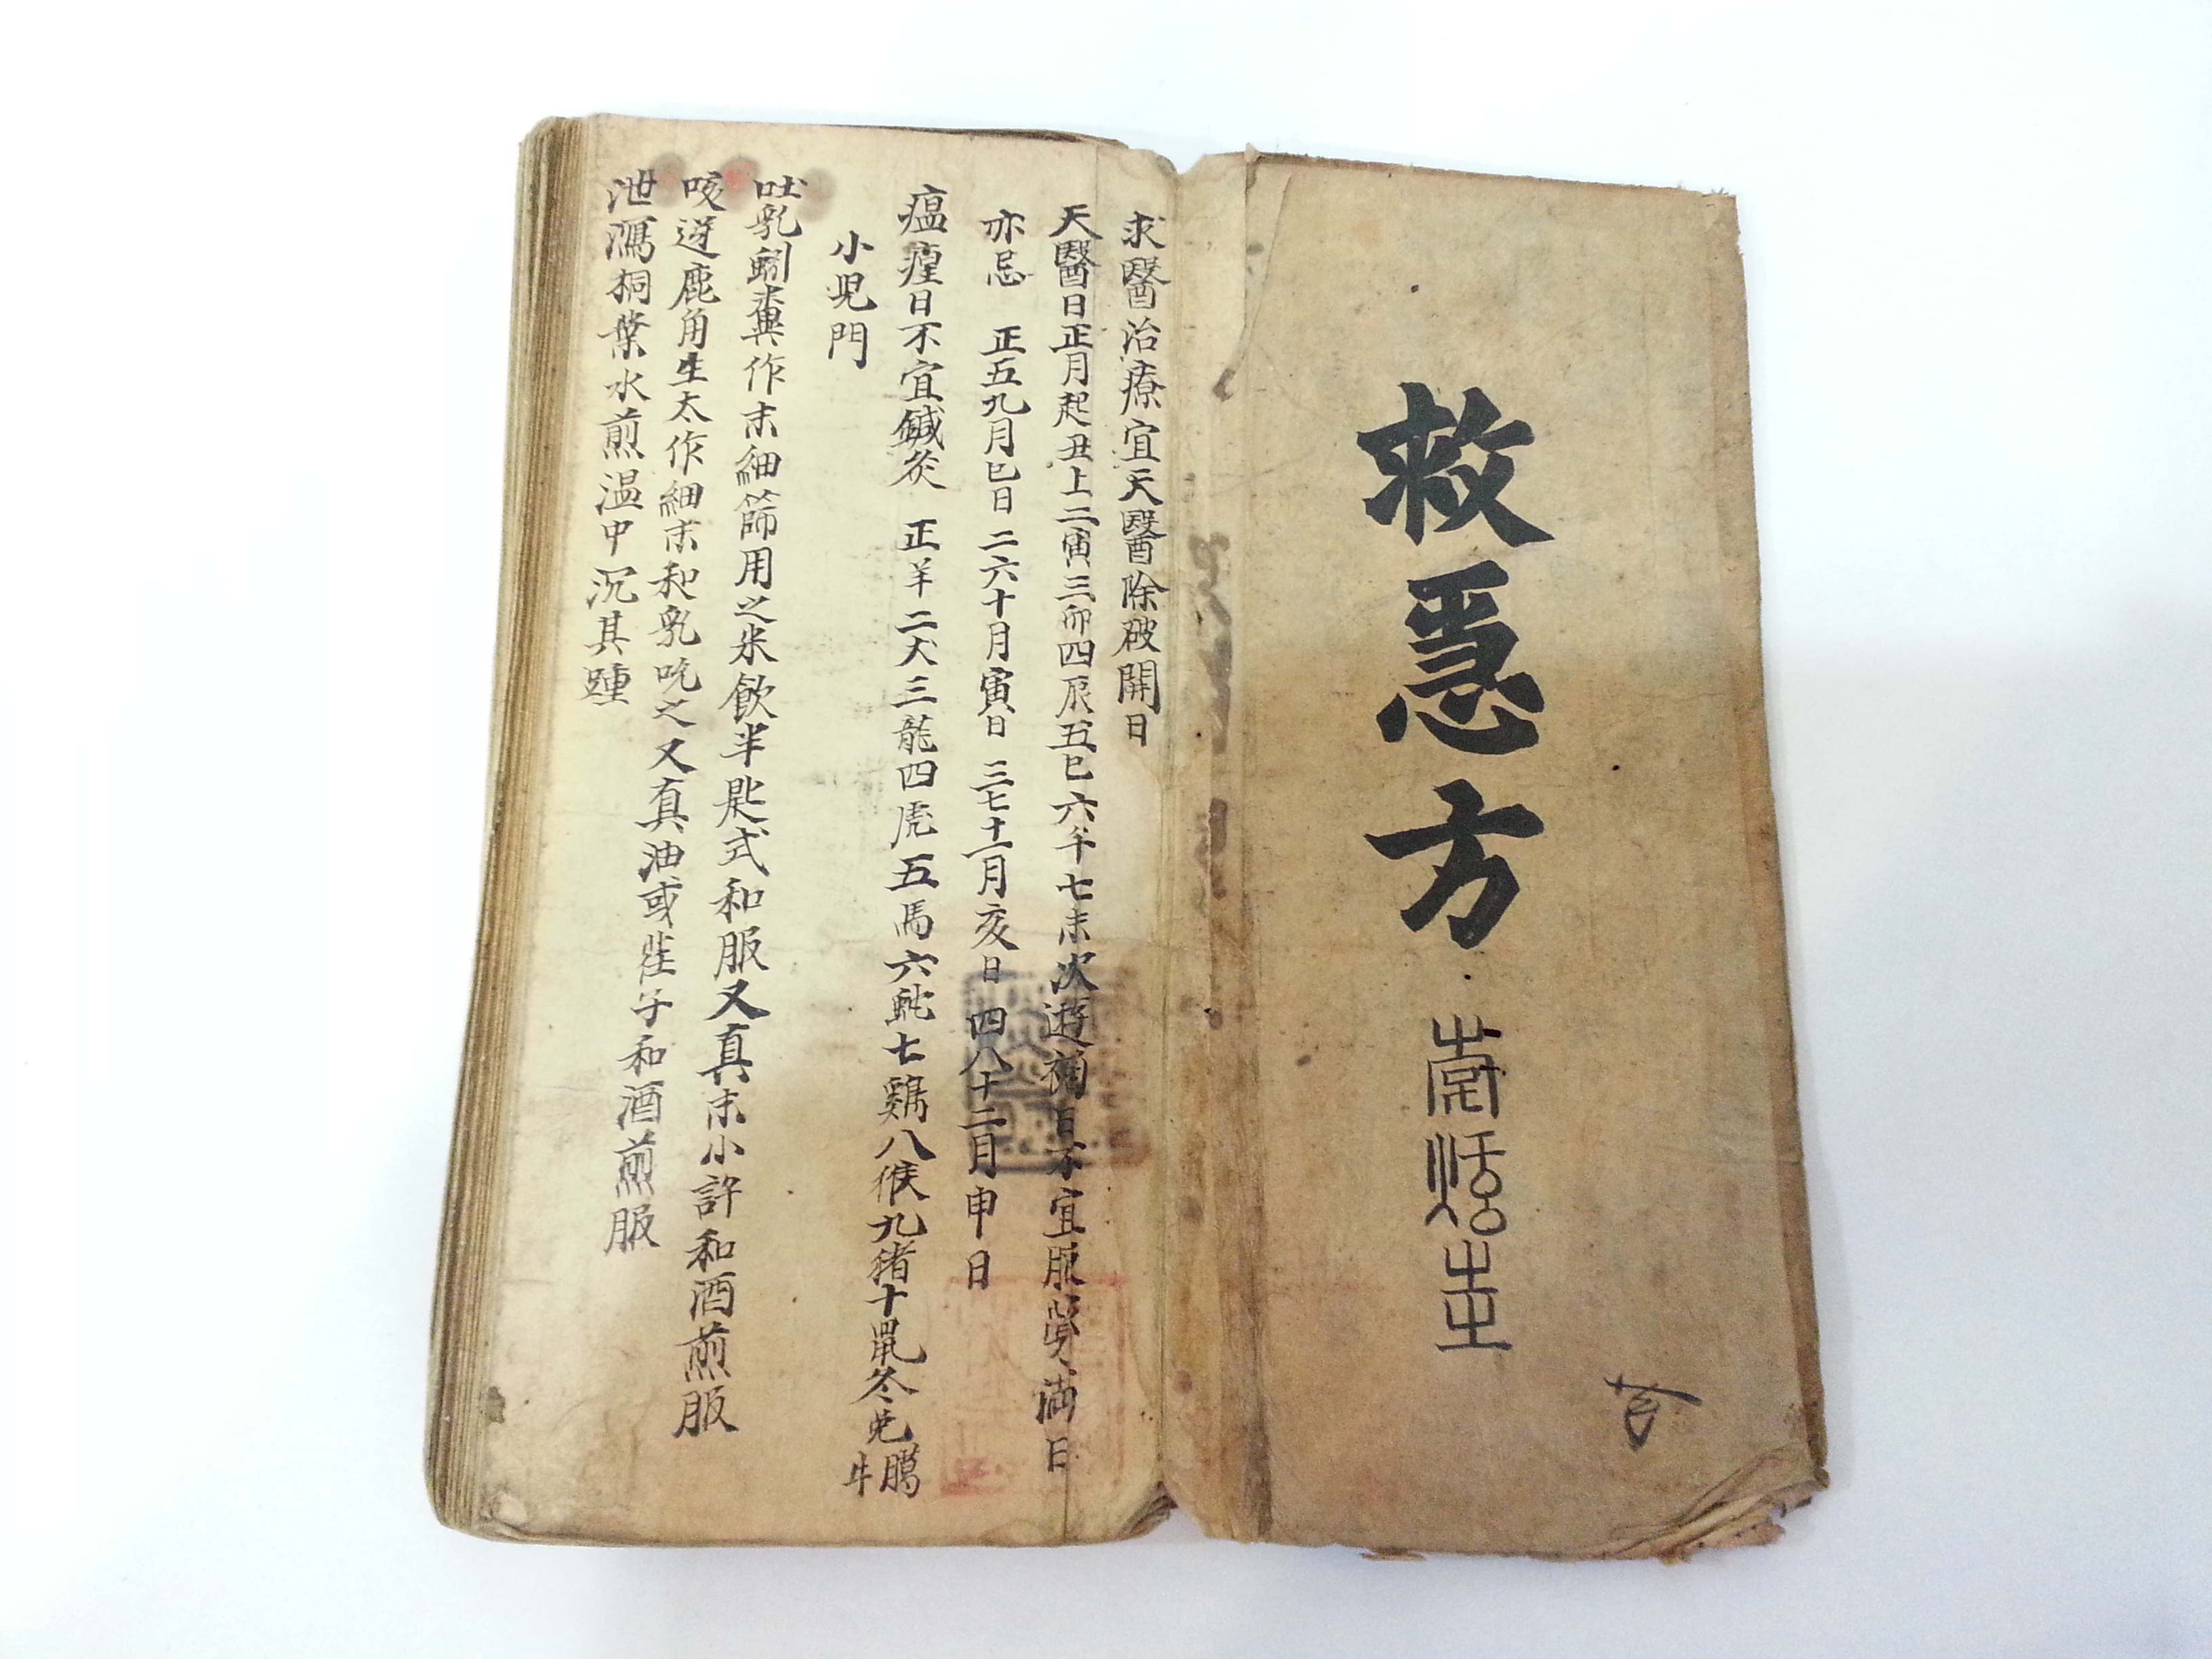 救急方
求醫治療宜天醫除破開日
天醫日正月起丑上二寅三卯四辰五巳六午七未次遊 日不宜服藥滿日
亦忌 正五九月巳日 二六十月寅日 三七十一月亥日 四八十二月申日
瘟㾮日不宜鍼灸 正羊二犬三龍四虎五馬六蛇七鷄八猴九猪十鼠冬兎臈牛
小児門
吐乳蚓糞作末細篩用之米飮半匙式和服又真末小許和酒煎服
咳逆鹿角生太作細末和乳吃之又真油或 子和酒煎服
泄瀉桐葉水煎温中沉其踵